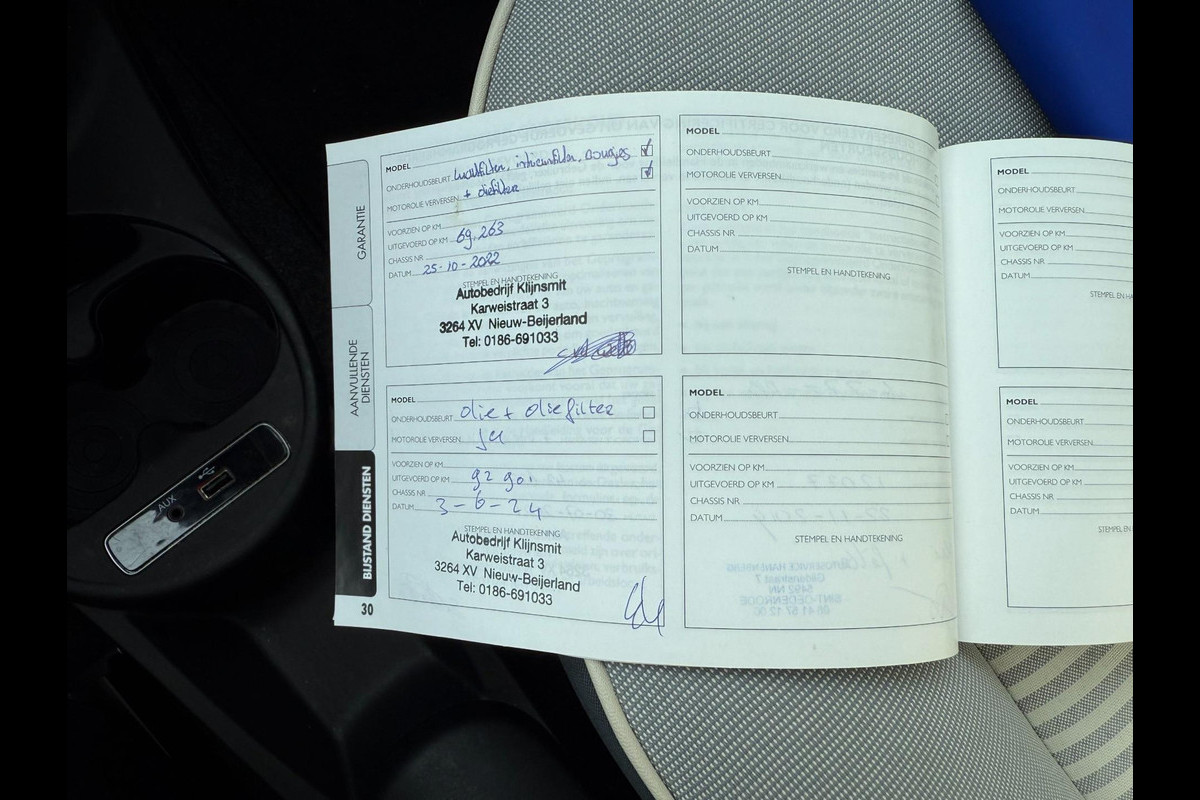 GARANTIE
AANVULLENDE
DIENSTEN
BIJSTAND DIENSTEN
30
MODEL
ONDERHOUDSBEURT luchtfilter, interieurfilter, Bougies
MOTOROLIE VERVERSEN + oliefilter
VOORZIEN OP KM
UITGEVOERD OP KM 69.263
CHASSIS NR
DATUM 25-10-2022
STEMPEL EN HANDTEKENING
Autobedrijf Klijnsmit
Karweistraat 3
3264 XV Nieuw-Beijerland
Tel: 0186-691033
MODEL
ONDERHOUDSBEURT olie + oliefilter
MOTOROLIE VERVERSEN ja
VOORZIEN OP KM
UITGEVOERD OP KM 92 901
CHASSIS NR
DATUM 3-6-24
STEMPEL EN HANDTEKENING
Autobedrijf Klijnsmit
Karweistraat 3
3264 XV Nieuw-Beijerland
Tel: 0186-691033
MODEL
ONDERHOUDSBEURT
MOTOROLIE VERVERSEN
VOORZIEN OP KM
UITGEVOERD OP KM
CHASSIS NR
DATUM
STEMPEL EN HANDTEKENING
MODEL
ONDERHOUDSBEURT
MOTOROLIE VERVERSEN
VOORZIEN OP KM
UITGEVOERD OP KM
CHASSIS NR
DATUM
STEMPEL EN HANDTEKENING
MODEL
ONDERHOUDSBEURT
MOTOROLIE VERVERSEN
VOORZIEN OP KM
UITGEVOERD OP KM
CHASSIS NR
DATUM
STEMPEL EN
MODEL
ONDERHOUDSBEURT
MOTOROLIE VERVERSEN
VOORZIEN OP KM
UITGEVOERD OP KM
CHASSIS NR
DATUM
STEMPEL EN
AUX